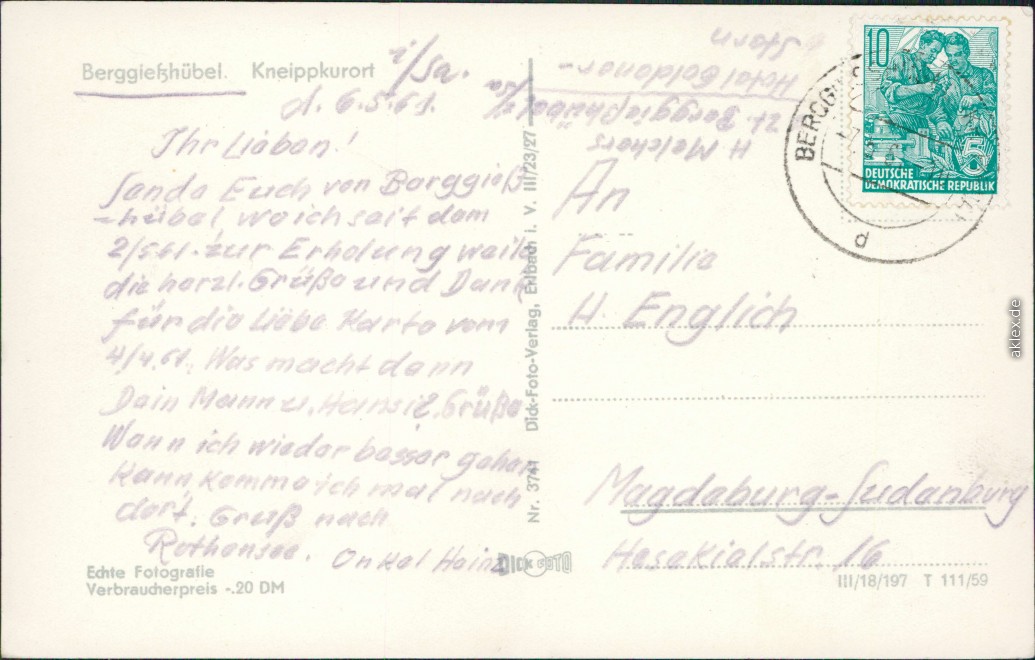 Berggießhübel. Kneippkurort i/Sa.
d. 6.5.61.
Ihr Lieben!
Sende Euch von Berggieß-
-hübel, wo ich seit dem
2/5.61. zur Erholung weile
die herzl. Grüße und Dank
für die Liebe Karte vom
4/4.61. Was macht denn
Dein Mann u. Hansi
Grüße
Wenn ich wieder besser gehen
kann komme ich mal nach
dort. Gruß nach
Rothensee. Onkel Heinz
Echte Fotografie
Verbraucherpreis -.20 DM
Nr. 3741 Dick-Foto-Verlag, Erlbach i. V. III/23/27
DICK FOTO
H Melchers
zt. Berggießhübel i/Sa
Hotel Goldener-
Stern
An
Familie
H. Englich
Magdeburg-Sudenburg
Hesekielstr. 16
III/18/197 T 111/59
10
5
DEUTSCHE
DEMOKRATISCHE REPUBLIK
BERGG
d
aklex.de